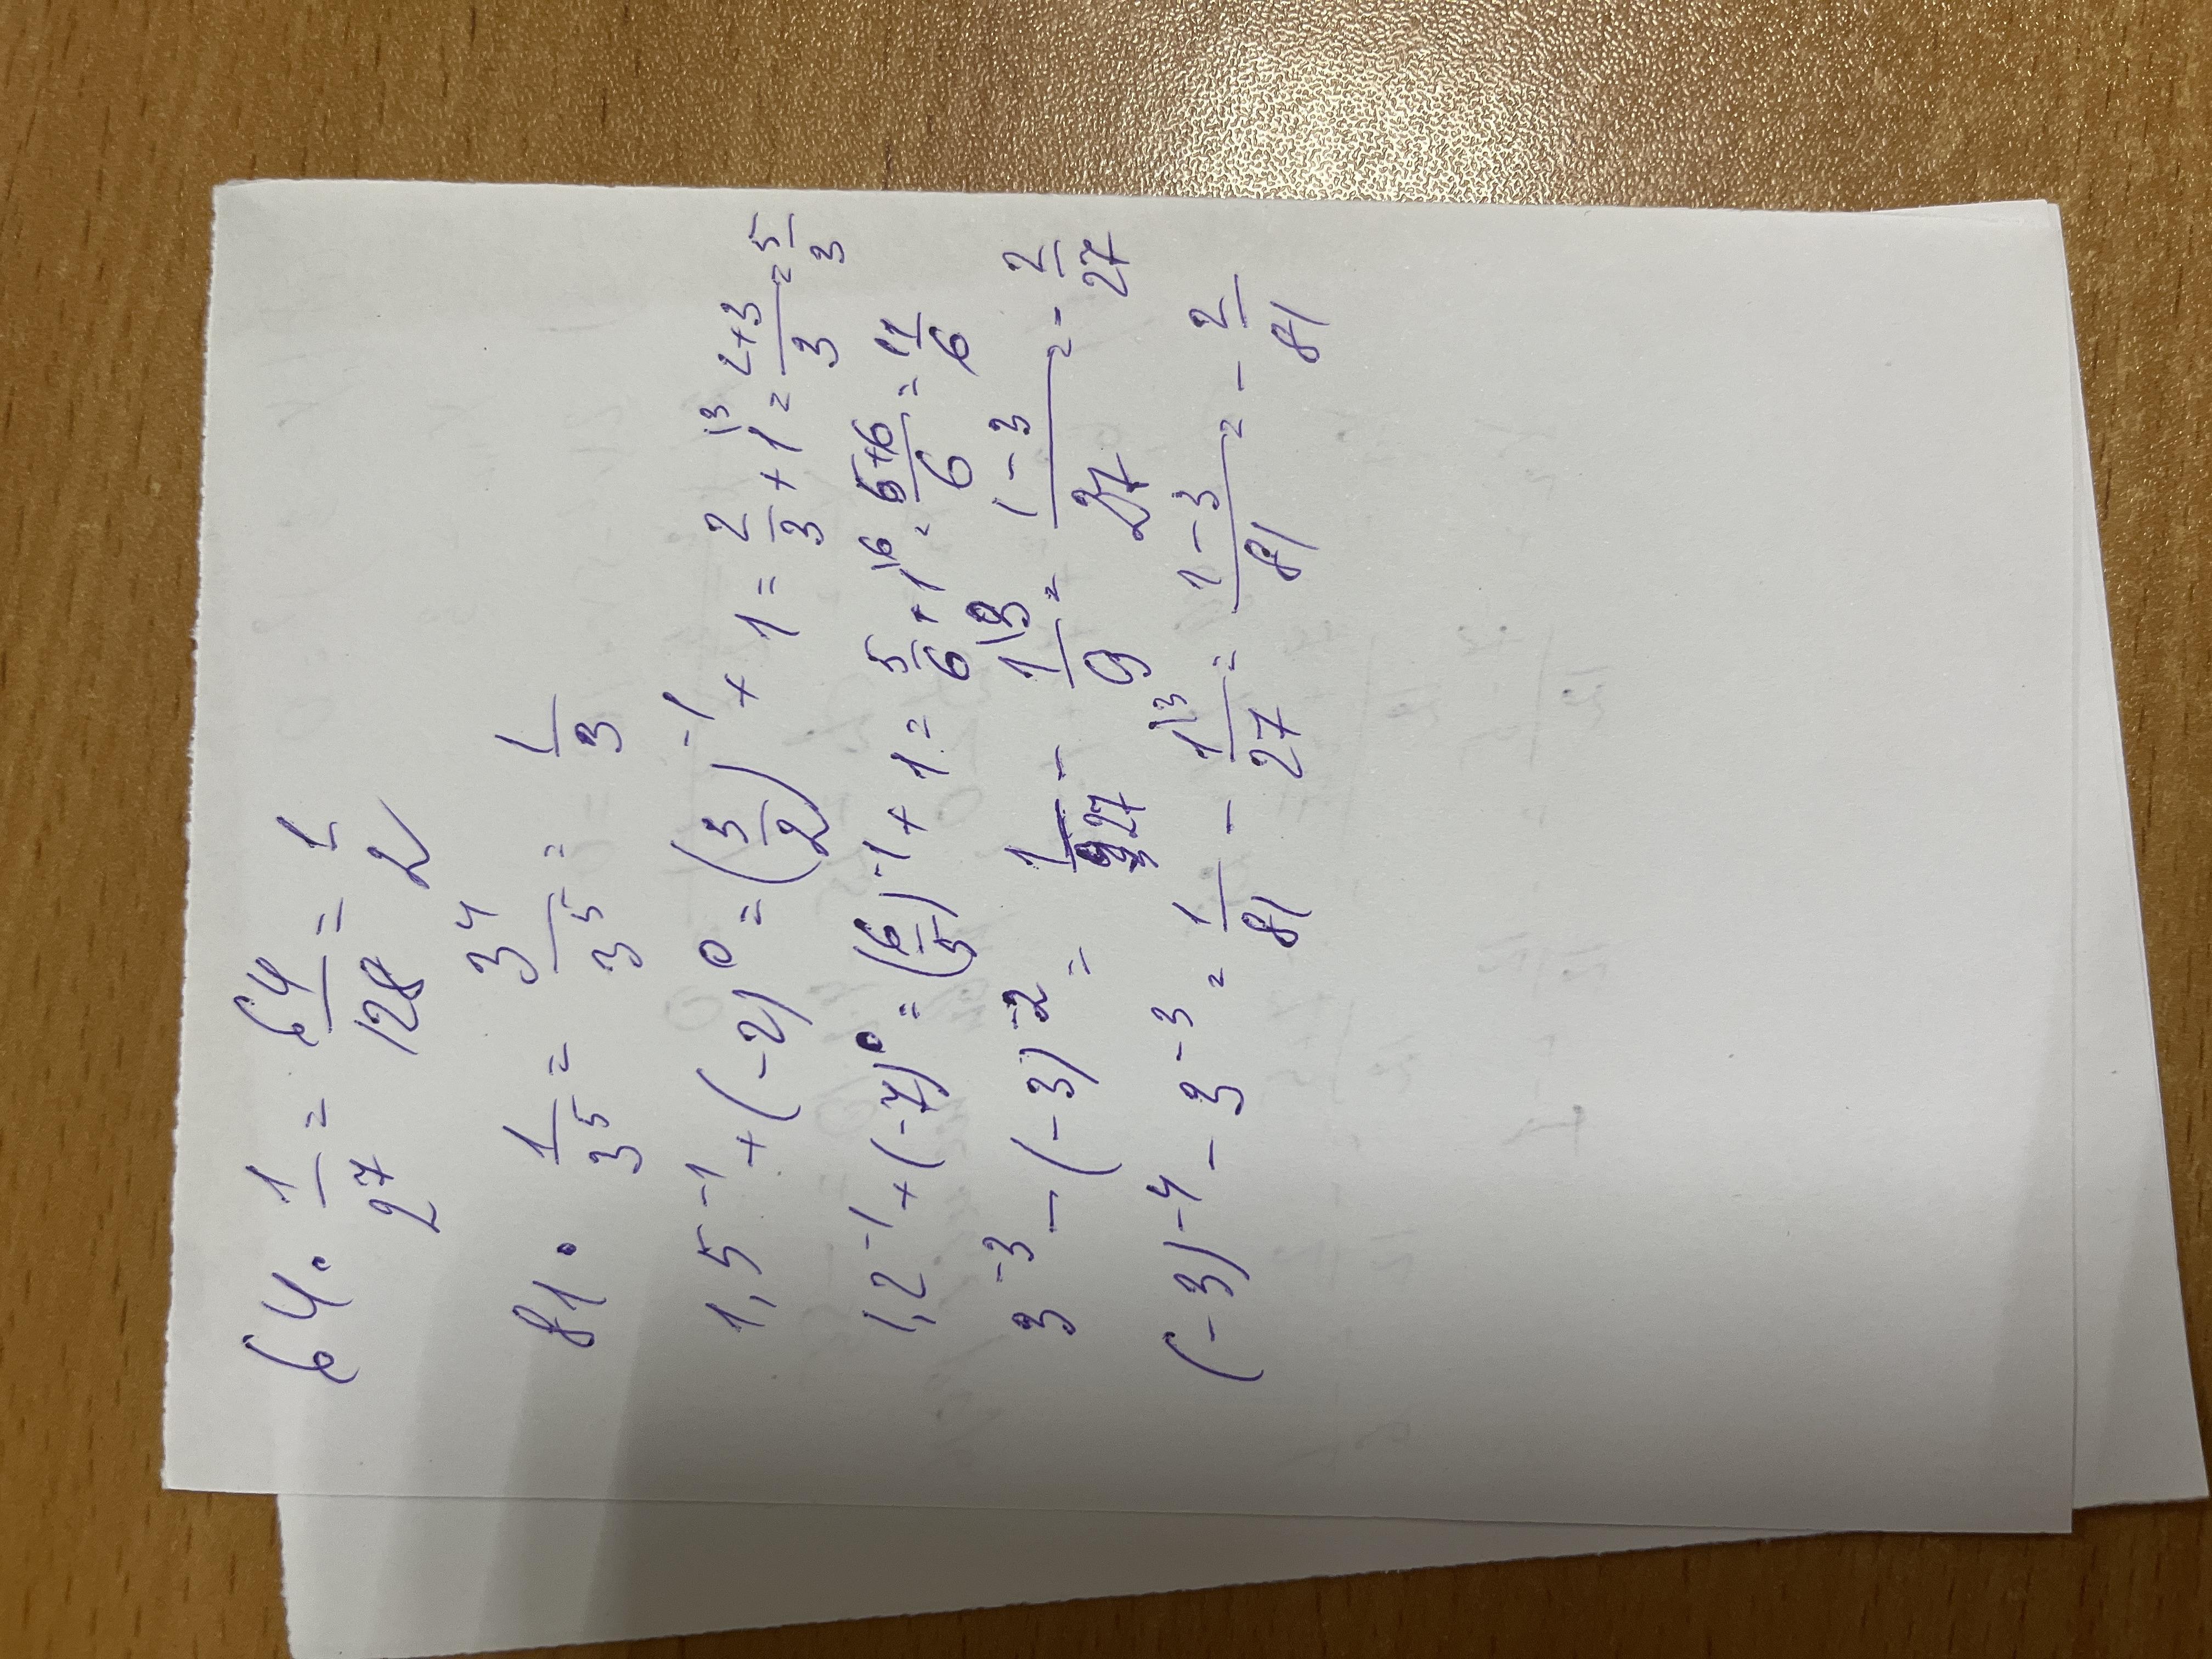 64 · 1/2^7 = 64/128 = 1/2
81 · 1/3^5 = 3^4/3^5 = 1/3
1,5^-1 + (-2)^0 = (3/2)^-1 + 1 = 2/3 + 1\3 = 2+3/3 = 5/3
1,2^-1 + (-7)^0 = (6/5)^-1 + 1 = 5/6 + 1\6 = 5+6/6 = 11/6
3^-3 - (-3)^-2 = 1/27 - 1\3/9 = 1-3/27 = -2/27
(-3)^-4 - 3^-3 = 1/81 - 1\3/27 = 1-3/81 = -2/81